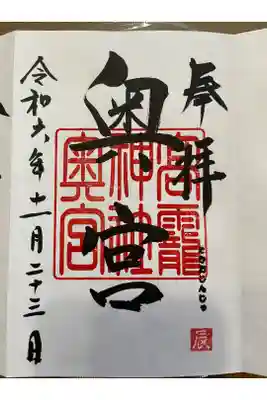 奉拝
奥宮
神社
奥宮
令和六年十一月二十三日